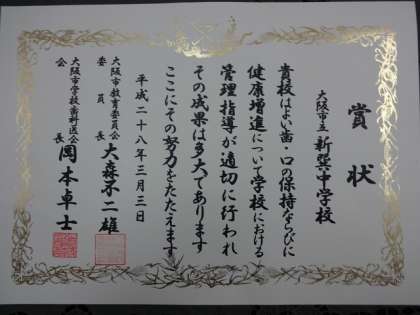 賞状
大阪市立 新巽中学校
貴校はよい歯・口の保持ならびに
健康増進について学校における
管理指導が適切に行われ
その成果は多大であります
ここにその努力をたたえます
平成二十八年三月三日
大阪市教育委員会
委員長 大森不二雄
大阪市学校歯科医会
会長 岡本卓士